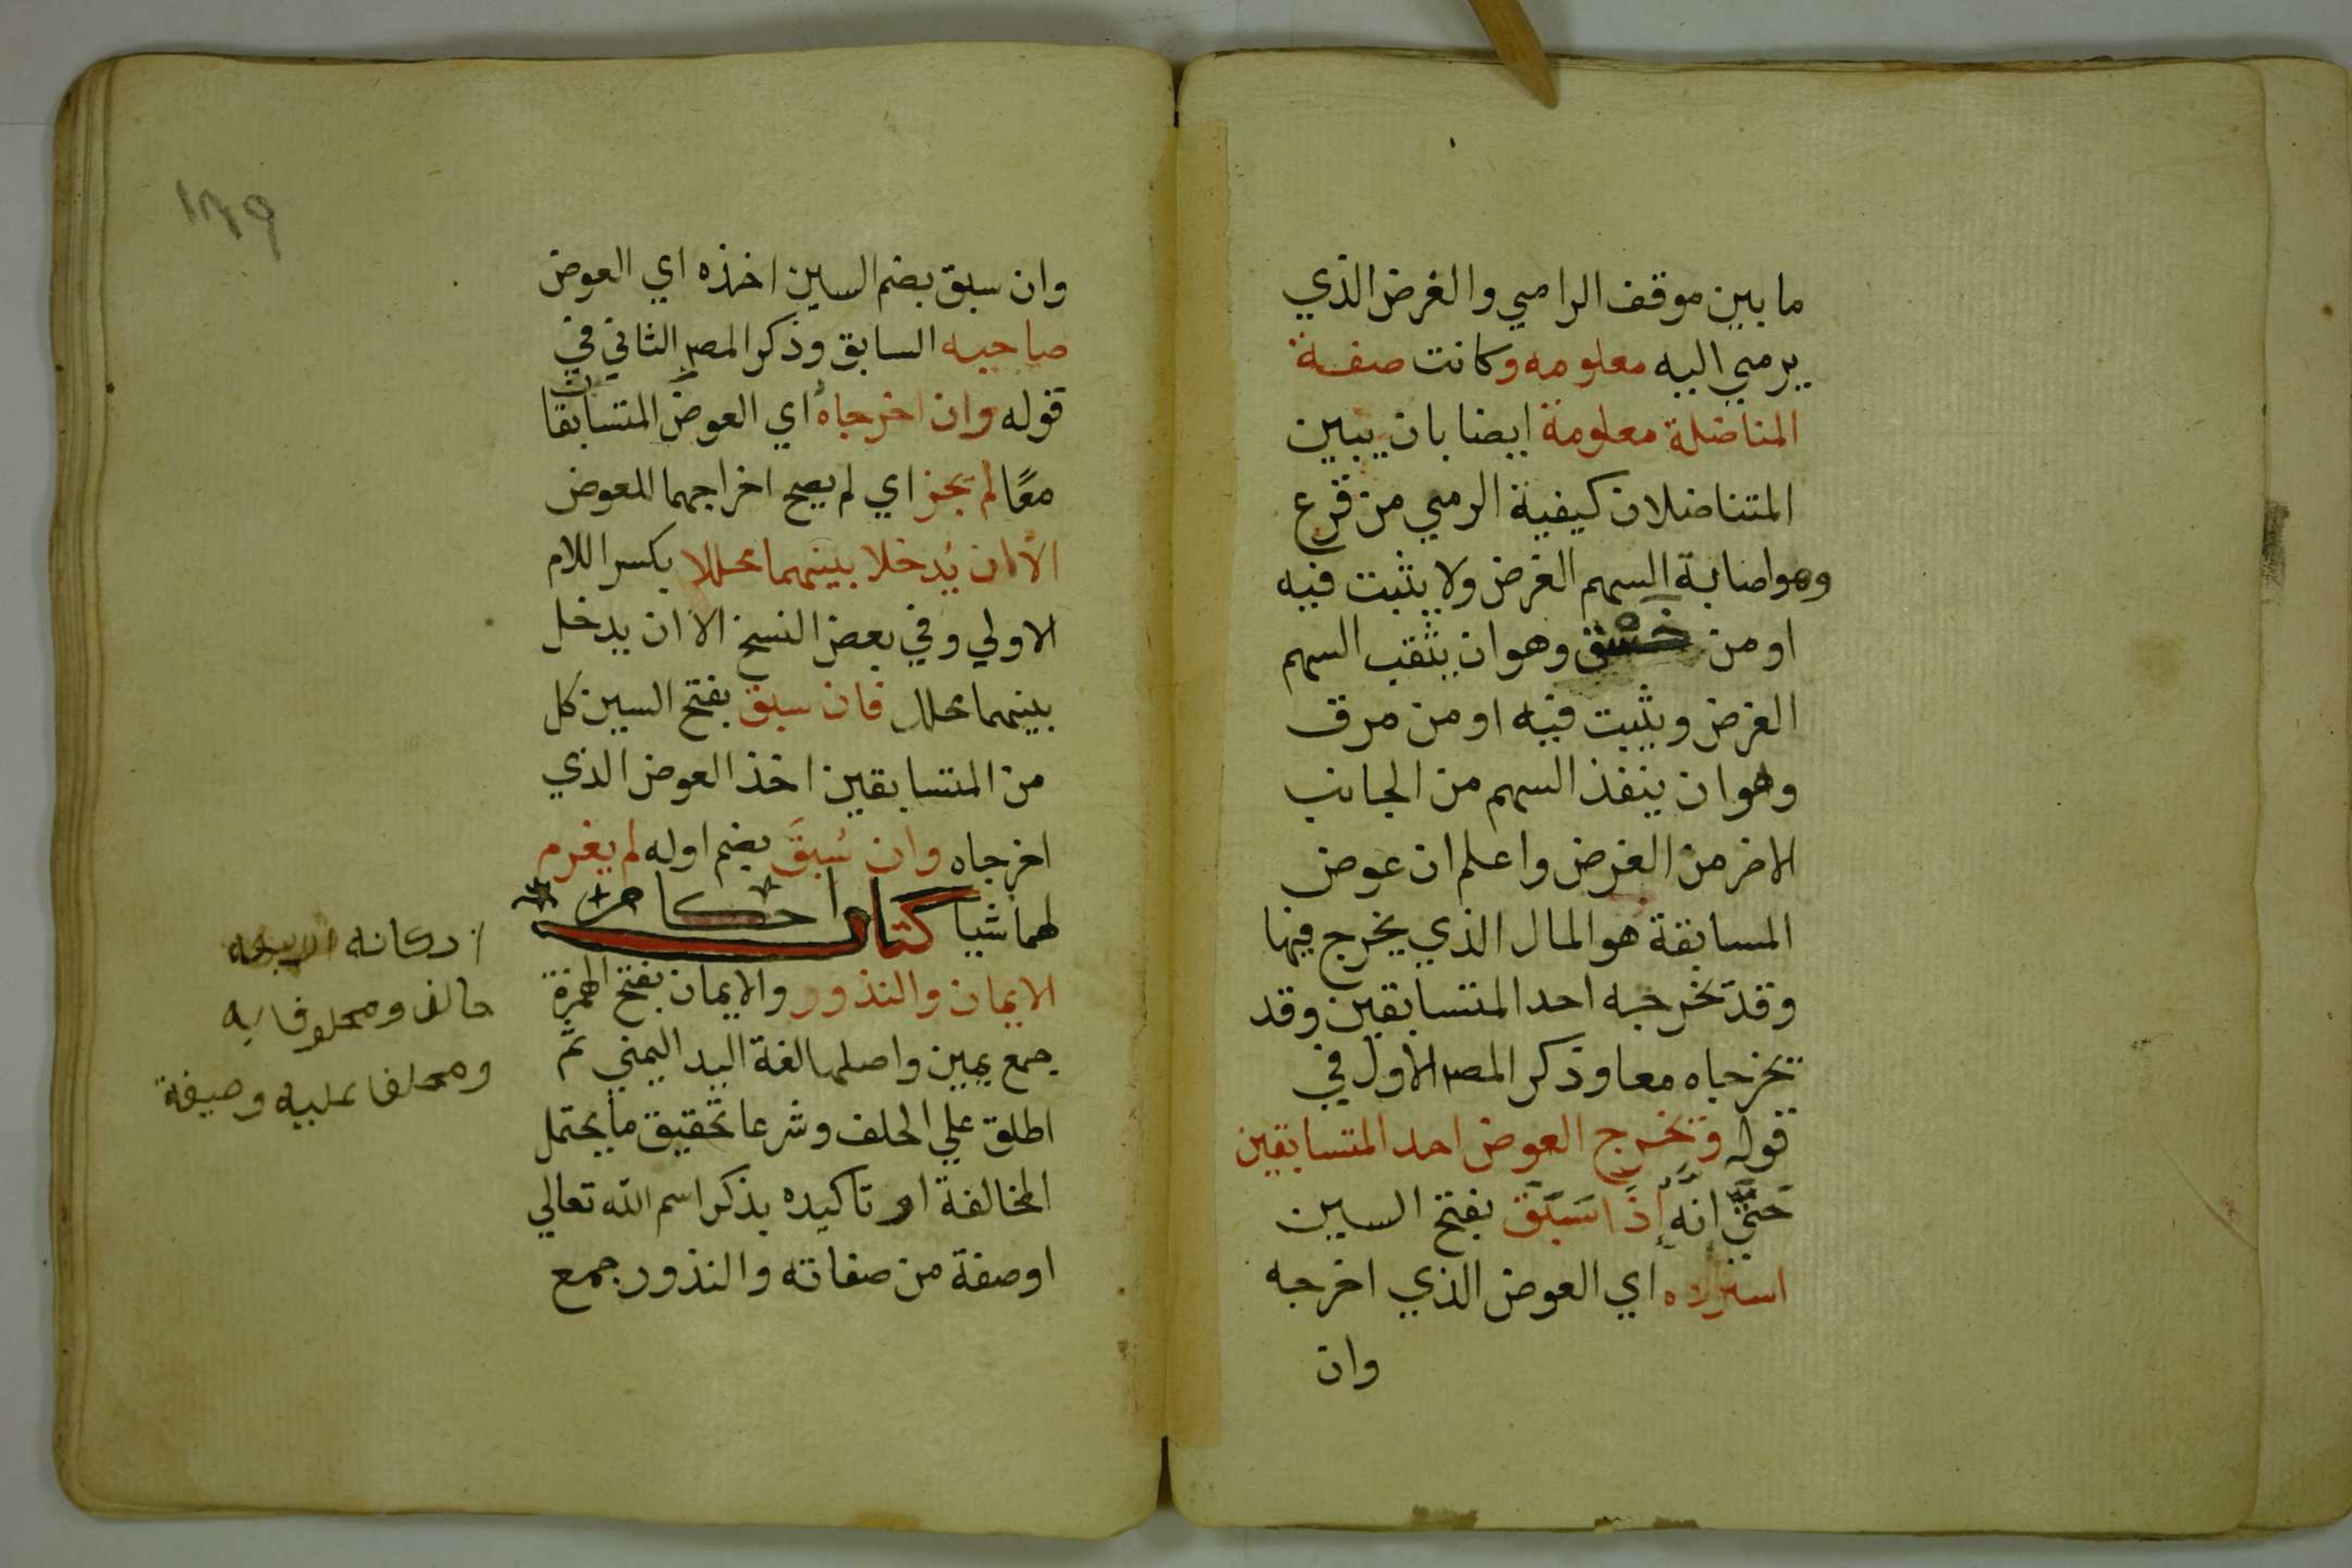 ما بين موقف الرامي والغرض الذي
يرمي اليه معلومه وكانت صفة
المناضلة معلومة ايضا بان يبين
المتناضلان كيفية الرمي من قرع
وهو اصابة السهم الغرض ولا يثبت فيه
او من خسق وهو ان يثقب السهم
الغرض ويثبت فيه او من مرق
وهو ان ينفذ السهم من الجانب
الاخر من الغرض واعلم ان عوض
المسابقة هو المال الذي يخرج فيها
وقد يخرجه احد المتسابقين وقد
يخرجاه معا وذكر المصـ الاول في
قوله ويخرج العوض احد المتسابقين
حَتيَّ انّه إِذَا سَبَقَ بفتح السين
استرده اي العوض الذي اخرجه
وان
١٣٩
وان سبق بضم السين اخذه اي العوض
صاحبه السابق وذكر المصـ الثاني في
قوله وان اخرجاه اي العوض المتسابقان
معًا لم يجز اي لم يصح اخراجهما للعوض
الا ان يُدخلا بينهما محللا بكسر اللام
الاولي وفي بعض النسخ الا ان يدخل
بينهما محلل فان سبق بفتح السين كل
من المتسابقين اخذ العوض الذي
اخرجاه وان سُبِقَ بضم اوله لم يغرم
لهما شيا كتاب احكام
الايمان والنذور والايمان بفتح الهمزة
جمع يمين واصلها لغة اليد اليمني ثم
اطلق علي الحلف وشرعا تحقيق ما يحتمل
المخالفة او تاكيده بذكر اسم الله تعالي
او صفة من صفاته والنذور جمع
اركانه اربعه
حالف ومحلوف به
ومحلف عليه وصيغة